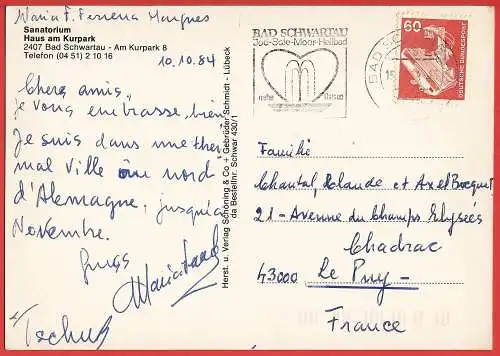 Maria F. Ferreira Marques
Sanatorium
Haus am Kurpark
2407 Bad Schwartau - Am Kurpark 8
Telefon (04 51) 2 10 16
10.10.84
Chers amis,
je vous embrasse bien
Je suis dans une ther
mal ville au nord
d'Alemagne, jusqu'à
Novembre.
Maria
Tschuß
Herst. u. Verlag Schöning & Co + Gebrüder Schmidt - Lübeck
Bestellnr. Schwar 430/1
BAD SCHWARTAU
Jod-Sole-Moor-Heilbad
nahe Ostsee
60
DEUTSCHE BUNDESPOST
Familie
Chantal, Rolande et Axel Bocquet
21 - Avenue du Champs Elysées
Chadrac
43000 Le Puy -
France